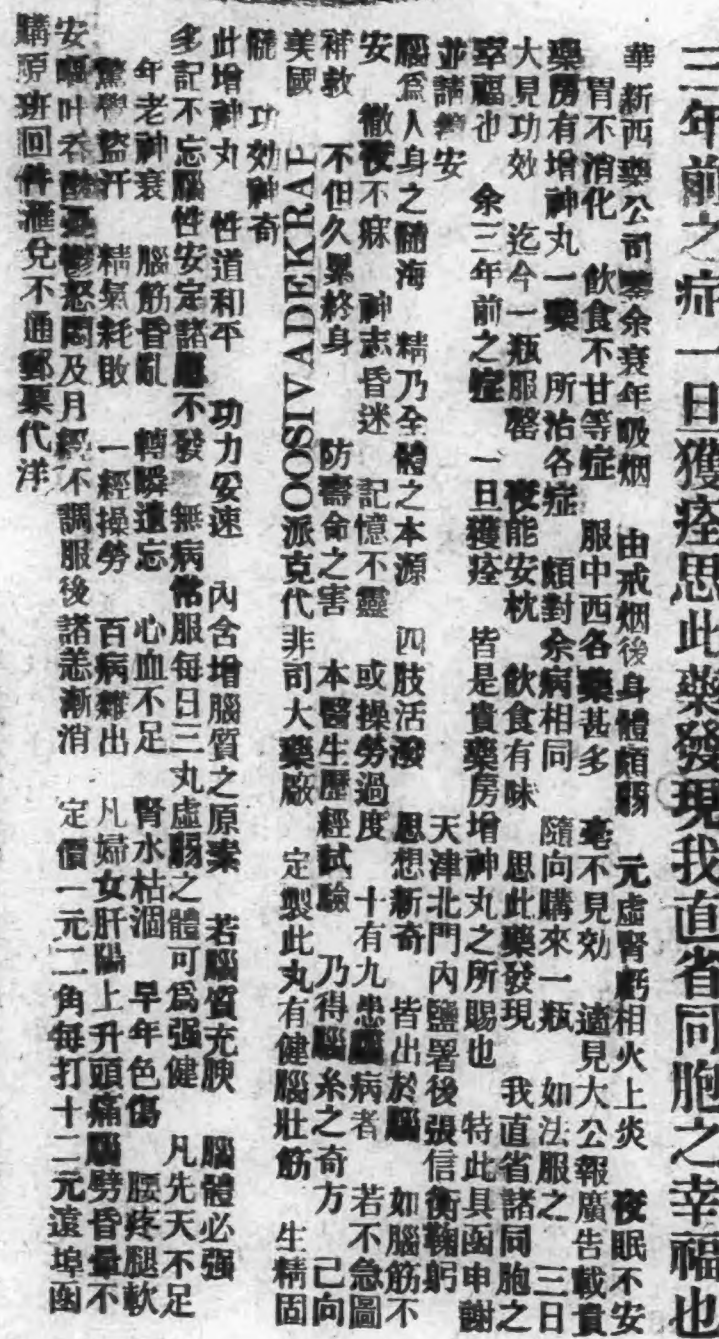 三年前之病一旦獲痊思此藥發現我直省同胞之幸福也
華新西藥公司鑒余衰年吸烟　由戒烟後身體頗弱　元虛腎虧相火上炎　夜眠不安
胃不消化　飲食不甘等症　服中西各藥甚多　毫不見効　適見大公報廣告載貴
藥房有增神丸一藥　所治各症　頗對余病相同　隨向購來一瓶　如法服之　三日
大見功效　迄今一瓶服罄　夜能安枕　飲食有味　思此藥發現　我直省諸同胞之
幸福也　余三年前之症　一旦獲痊　皆是貴藥房增神丸之所賜也　特此具函申謝
並請鈞安　天津北門內鹽署後張信衡鞠躬
腦爲人身之髓海　精乃全體之本源　四肢活潑　思想新奇　皆出於腦　如腦筋不
安　徹夜不寐　神志昏迷　記憶不靈　或操勞過度　十有九患腦病者　若不急圖
補救　不但久累終身　防壽命之害　本醫生歷經試驗　乃得腦糸之奇方　己向
美國　OOSIVADEKRAF派克代非司大藥廠　定製此丸有健腦壯筋　生精固
髓　功効神奇
此增神丸　性道和平　功力安速　內含增腦質之原素　若腦質充腴　腦體必强
多記不忘腦性安定諸慮不發　無病常服每日三丸虛弱之體可爲强健　凡先天不足
年老神衰　腦筋昏亂　轉瞬遺忘　心血不足　腎水枯涸　早年色傷　腰疼腿軟
驚覺盜汗　精氣耗敗　一經操勞　百病雜出　凡婦女肝陽上升頭痛腦劈昏暈不
安嘔吐吞酸憂鬱怒悶及月經不調服後諸恙漸消　定價一元二角每打十二元遠埠函
購原班回件滙兌不通郵票代洋